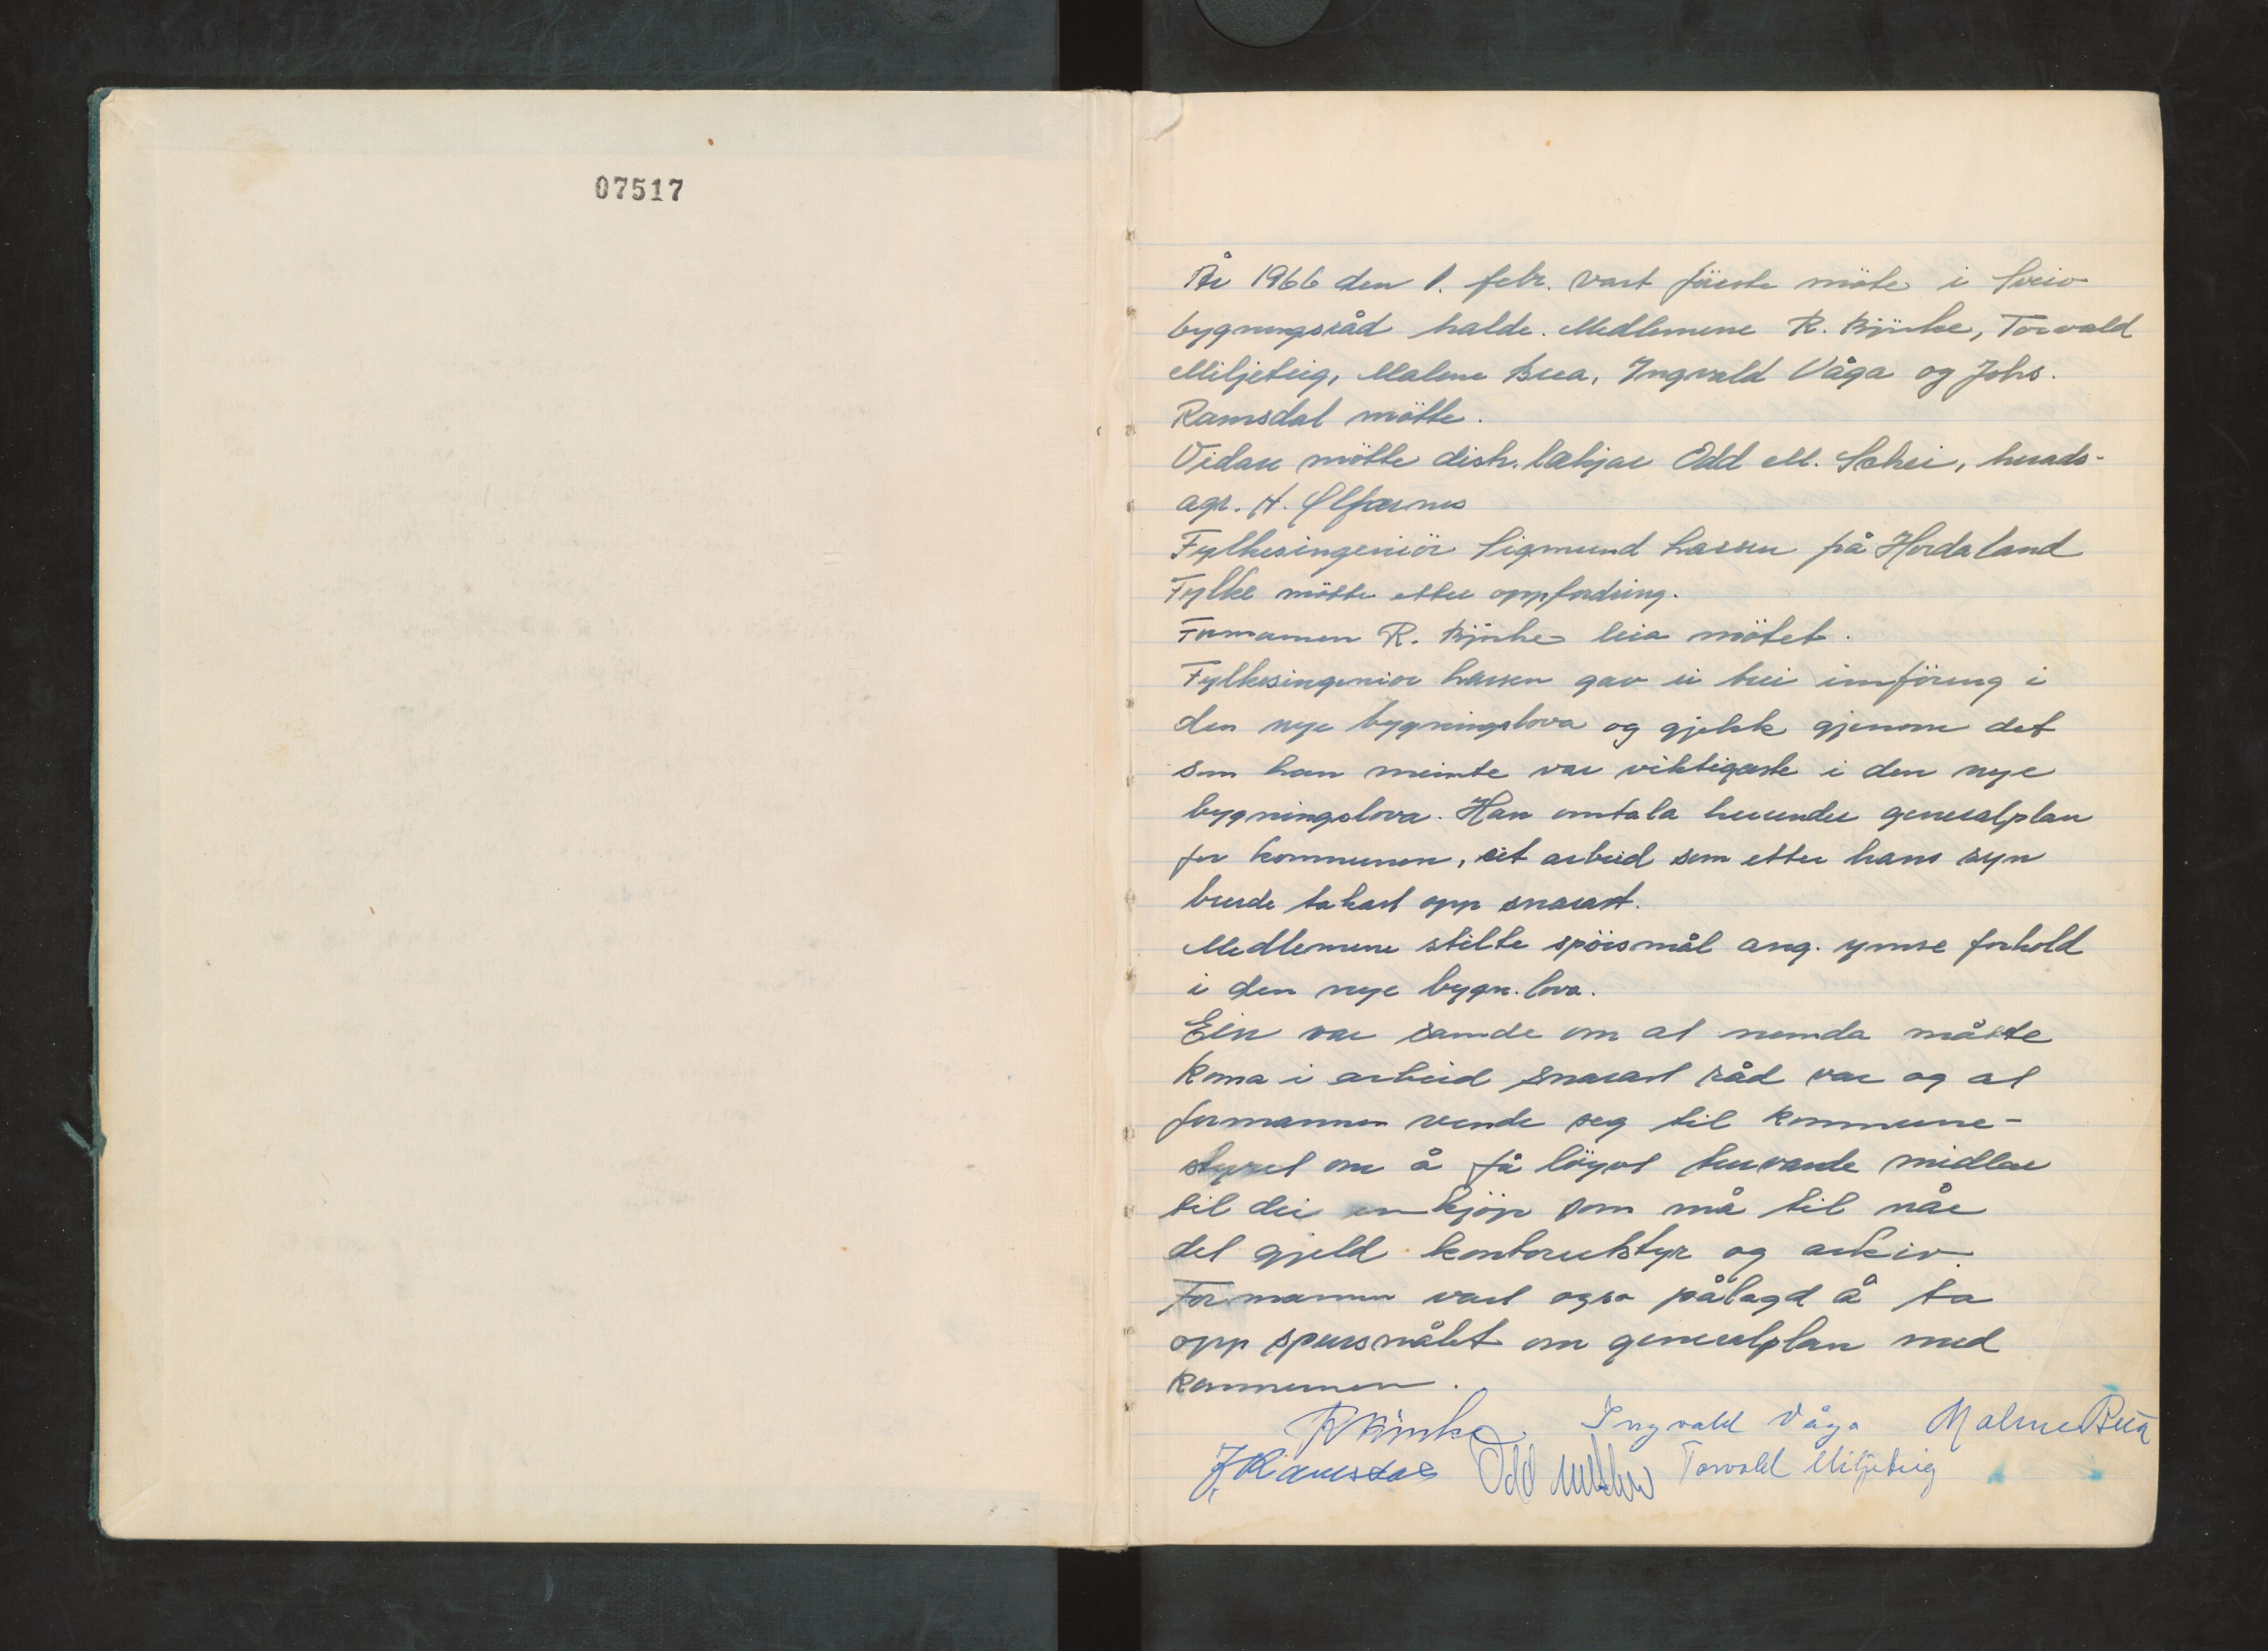 07517
År 1966 den 1. febr. vart förste möte i Sveio
bygningsråd halde. Medlemene R. Bjørke, Torvald
Miljeteig, Malene Bua, Ingvald Våga og Johs.
Ramsdal mötte.
Vidare mötte distr. lækjar Odd M. Schei, herads-
agr. H. Ølfarnes
Fylkesingeniör Sigmund Larsen på Hordaland
Fylke mötte etter oppfordring.
Formannen R. Bjørke leia mötet.
Fylkesingeniör Larsen gav ei brei innföring i
den nye bygningslova og gjekk gjenom det
som han meinte var viktigaste i den nye
bygningslova. Han omtala herunder generalplan
for kommunen, eit arbeid som etter hans syn
burde takast opp snarast.
Medlemene stilte spörsmål ang. ymse forhold
i den nye bygn.lova.
Ein var samde om at nemnda måtte
koma i arbeid snarast råd var og at
formannen vende seg til kommune-
styret om å få löyvt turvande midlar
til dei innkjöp som må til når
det gjeld kontorutstyr og arkiv.
Formannen vart også pålagd å ta
opp spursmålet om generalplan med
kommunen.
R Bjørke Ingvald Våga Malene Bua
J. Ramsdal Odd M Schei Torvald Miljeteig